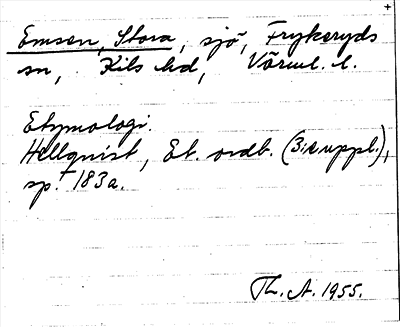 Emsen, Stora, sjö, Frykeryds
sn, Kils hd, Värml. l.
Etymologi.
Hellquist, Et. ordb. (3:e uppl.),
sp. 183a.
Th. A. 1955.